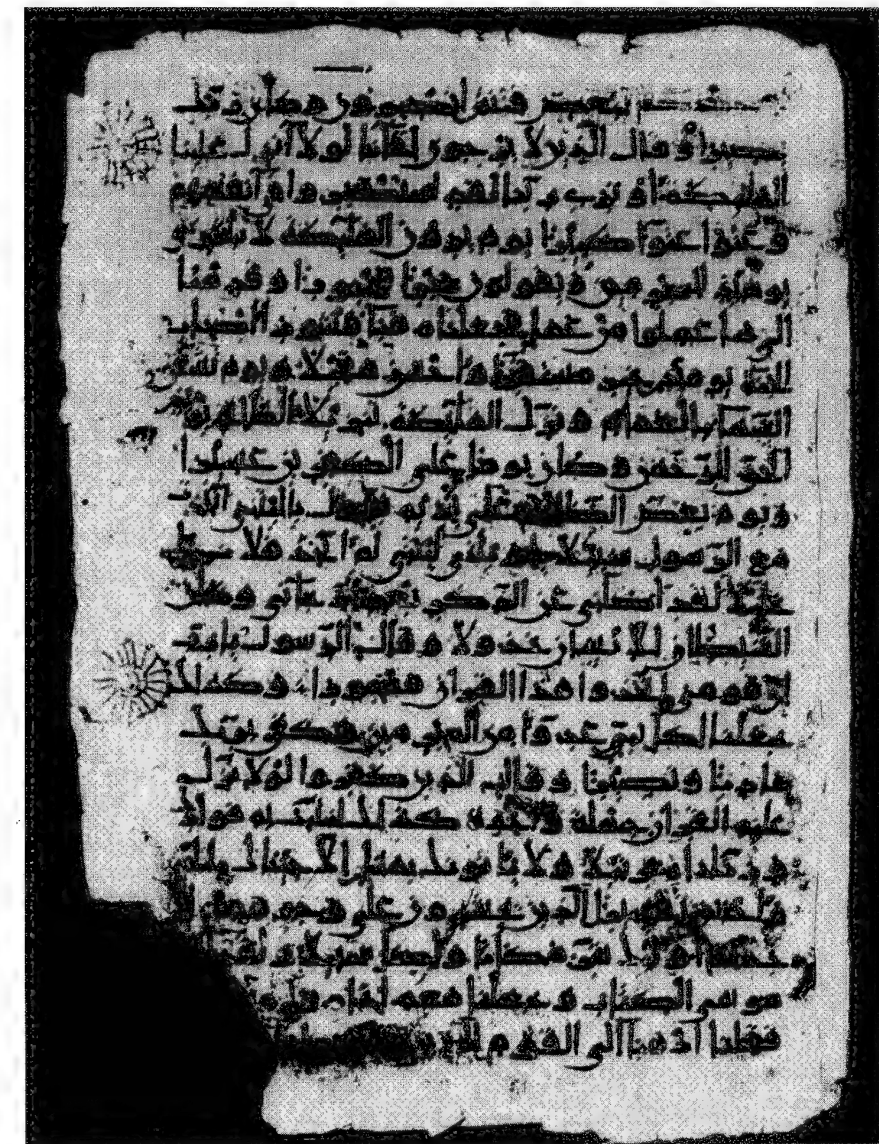 بعضكم لبعض فتنة اتصبرون وكان ربك
بصيرا وقال الذين لا يرجون لقانا لولا انزل علينا
المليكة او نرى ربنا لقد استكبروا في انفسهم
وعتوا عتوا كبيرا يوم يرون المليكة لا بشرى
يوميذ للمجرمين ويقولون حجرا محجورا وقدمنا
الى ما عملوا من عمل فجعلناه هبا منثورا اصحاب
الجنة يوميذ خير مستقرا واحسن مقيلا ويوم تشقق
السما بالغمام ونزل المليكة تنزيلا الملك يوميذ
الحق للرحمن وكان يوما على الكفرين عسيرا
ويوم يعض الظالم على يديه يقول ياليتني اتخذت
مع الرسول سبيلا يويلتى ليتني لم اتخذ فلانا
خليلا لقد اضلني عن الذكر بعد اذ جاني وكان
الشيطان للانسان خذولا وقال الرسول يارب
ان قومي اتخذوا هذا القران مهجورا وكذلك
جعلنا لكل نبي عدوا من المجرمين وكفى بربك
هاديا ونصيرا وقال الذين كفروا لولا نزل
عليه القران جملة وحدة كذلك لنثبت به فوادك
ورتلناه ترتيلا ولا ياتونك بمثل الا جيناك بالحق
واحسن تفسيرا الذين يحشرون على وجوههم الى
جهنم اوليك شر مكانا واضل سبيلا ولقد
موسى الكتاب وجعلنا معه اخاه هرون
فقلنا اذهبا الى القوم الذين